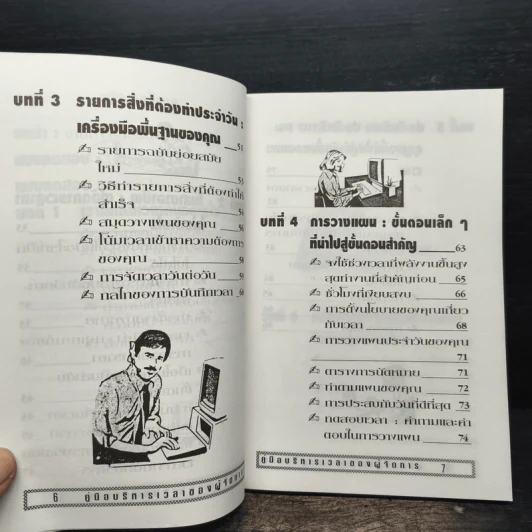 บทที่ 3 รายการสิ่งที่ต้องทำประจำวัน :
เครื่องมือพื้นฐานของคุณ 51
รายการฉบับย่อยสมัย
ใหม่ 53
วิธีทำรายการสิ่งที่ต้องทำให้
สำเร็จ
สมุดวางแผนของคุณ
ให้เวลาเข้าหาความต้องการ
ของคุณ
การจัดเวลาวันต่อวัน
กลไกของการบันทึกเวลา 60
6 คู่มือบริหารเวลาของผู้จัดการ
บทที่ 4 การวางแผน : ขั้นตอนเล็ก ๆ
ที่นำไปสู่ขั้นตอนสำคัญ 63
จงใช้ช่วงเวลาที่พลังงานขึ้นสูง
สุดทำงานที่สำคัญก่อน 65
ชั่วโมงที่เงียบสงบ 66
การตั้งนโยบายของคุณเกี่ยว
กับเวลา 68
การวางแผนประจำวันของคุณ
71
ตารางการนัดหมาย 71
ทำตามแผนของคุณ 72
การประสบกับวันที่ดีที่สุด 73
ทดสอบเวลา : คำถามและคำ
ตอบในการวางแผน 74
คู่มือบริหารเวลาของผู้จัดการ 7